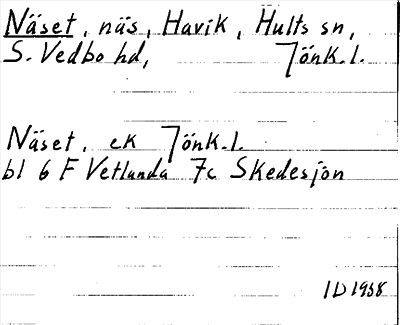 Näset, näs, Havik, Hults sn,
S. Vedbo hd, Jönk.l.
Näset, ek Jönk.l.
bl 6 F Vetlunda 7c Skedesjön
ID 1958